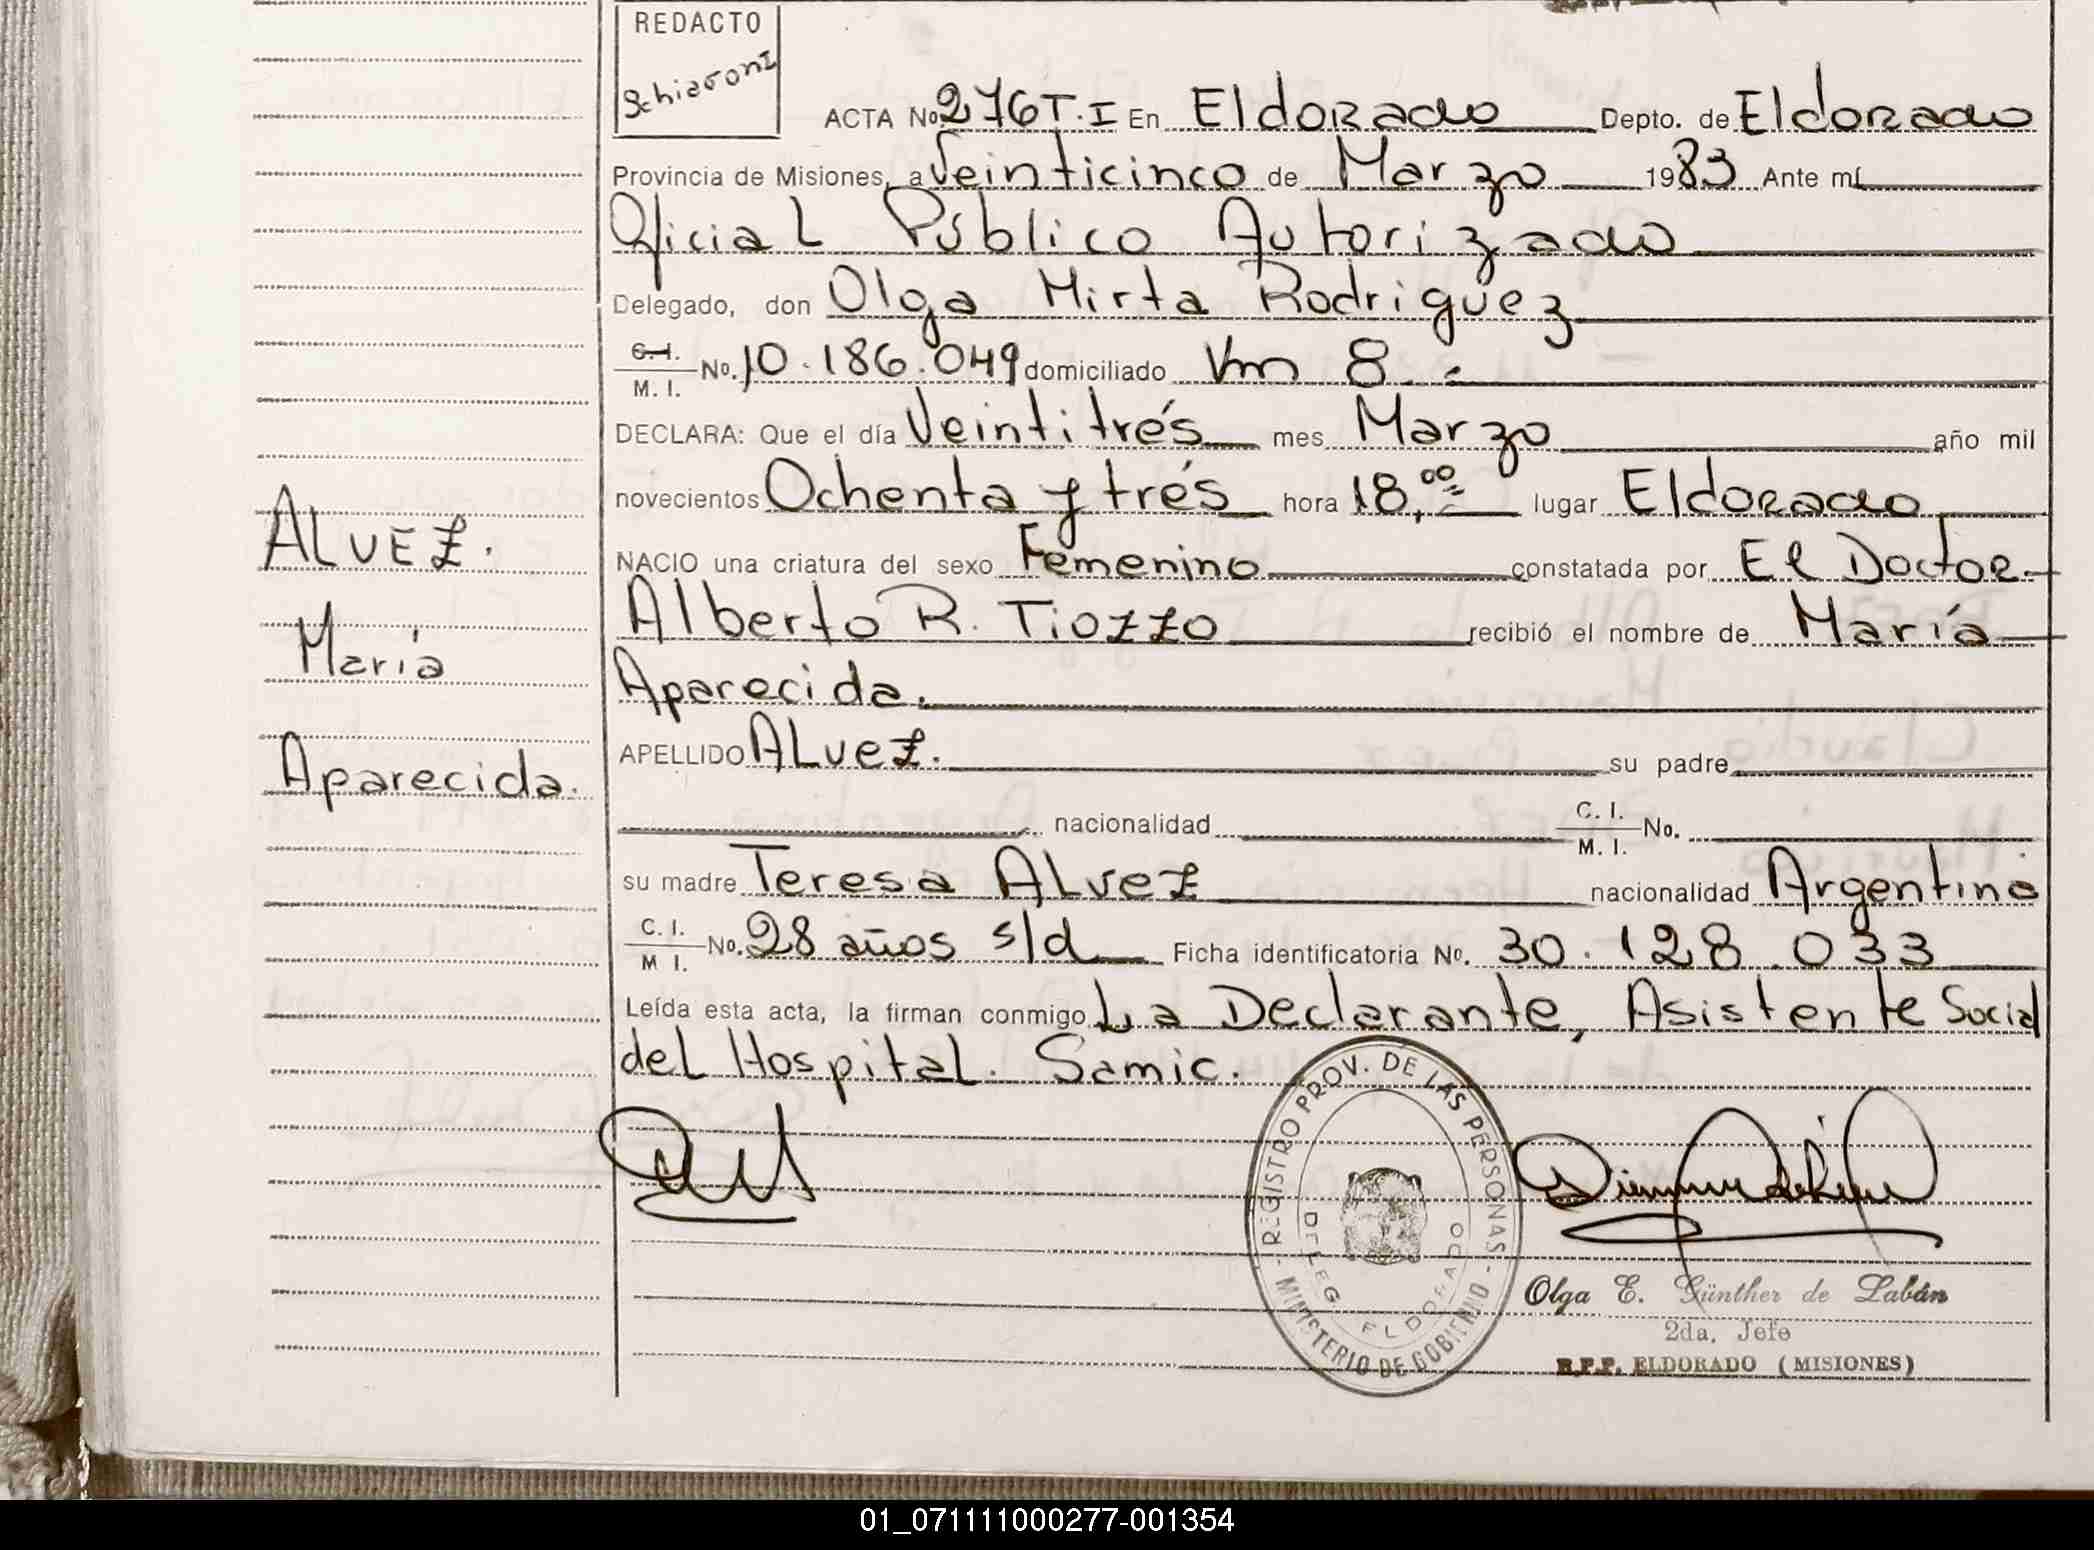 REDACTO
Schiavoni
ACTA No. 276 T.I En Eldorado Depto. de Eldorado
Provincia de Misiones, a Veinticinco de Marzo 1983 Ante mí
Oficial Público Autorizado
Delegado, don Olga Mirta Rodriguez
C.I. M. I. No. 10.186.049 domiciliado Km 8.
DECLARA: Que el día Veintitrés mes Marzo año mil
novecientos Ochenta y trés hora 18,00 lugar Eldorado
NACIO una criatura del sexo Femenino constatada por El Doctor
Alberto R. Tiozzo recibió el nombre de María
Aparecida.
APELLIDO ALvez. su padre
nacionalidad C. I. M. I. No.
su madre Teresa ALvez nacionalidad Argentina
C. I. M I. No. 28 años s/d Ficha identificatoria No. 30.128.033
Leída esta acta, la firman conmigo La Declarante, Asistente Social
del Hospital. Samic.
ALVEZ.
María
Aparecida.
REGISTRO PROV. DE LAS PERSONAS - MINISTERIO DE GOBIERNO -
DELEG. ELDORADO
Olga E. Günther de Labán
2da. Jefe
R.P.P. ELDORADO (MISIONES)
01_071111000277-001354